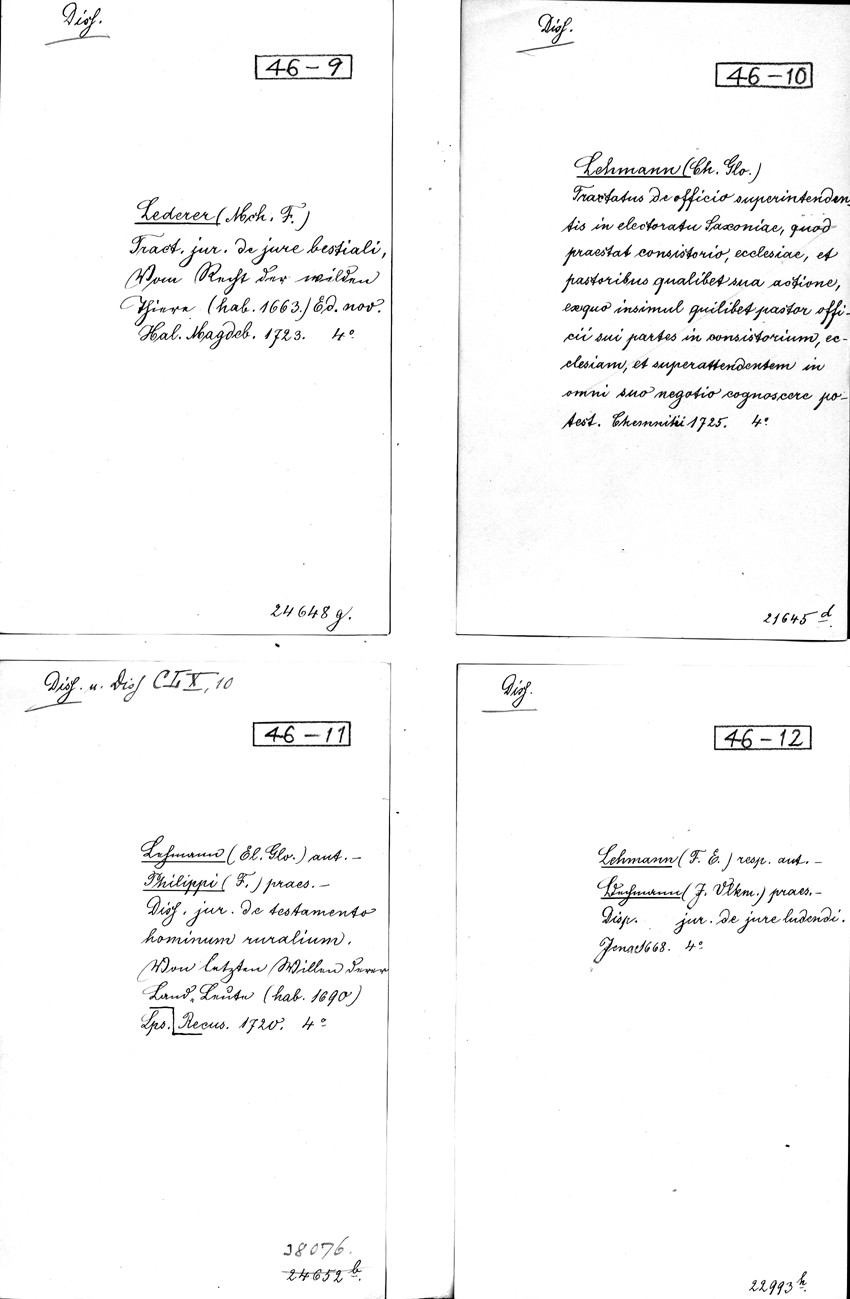 Diss.
46-9
Lederer (Mch. F.)
Tract. jur. de jure bestiali,
Vom Recht der wilden
Thiere (hab. 1663.) Ed. nov.
Hal. Magdeb. 1723. 4°
24648 g.
Diss.
46-10
Lehmann (Ch. Glo.)
Tractatus de officio superintenden
tis in electoratu Saxoniae, quod
praestat consistorio, ecclesiae, et
pastoribus qualibet sua actione,
ex quo insimul quilibet pastor offi-
cii sui partes in consistorium, ec-
clesiam, et superattendentem in
omni suo negotio cognoscere po-
test. Chemnitii 1725. 4°
21645 d.
Diss. u. Diss CLX, 10
46-11
Lehmann (El. Glo.) aut. —
Philippi (F.) praes. —
Diss. jur. de testamento
hominum ruralium.
Von letzten Willen derer
Land-Leute (hab. 1690)
Lps. Recus. 1720. 4°
38076.
24652 b.
Diss.
46-12
Lehmann (F. E.) resp. aut. —
(J. Vlkm.) praes. —
Disp. jur. de jure ludendi.
Jena 1668. 4°
22993 h.